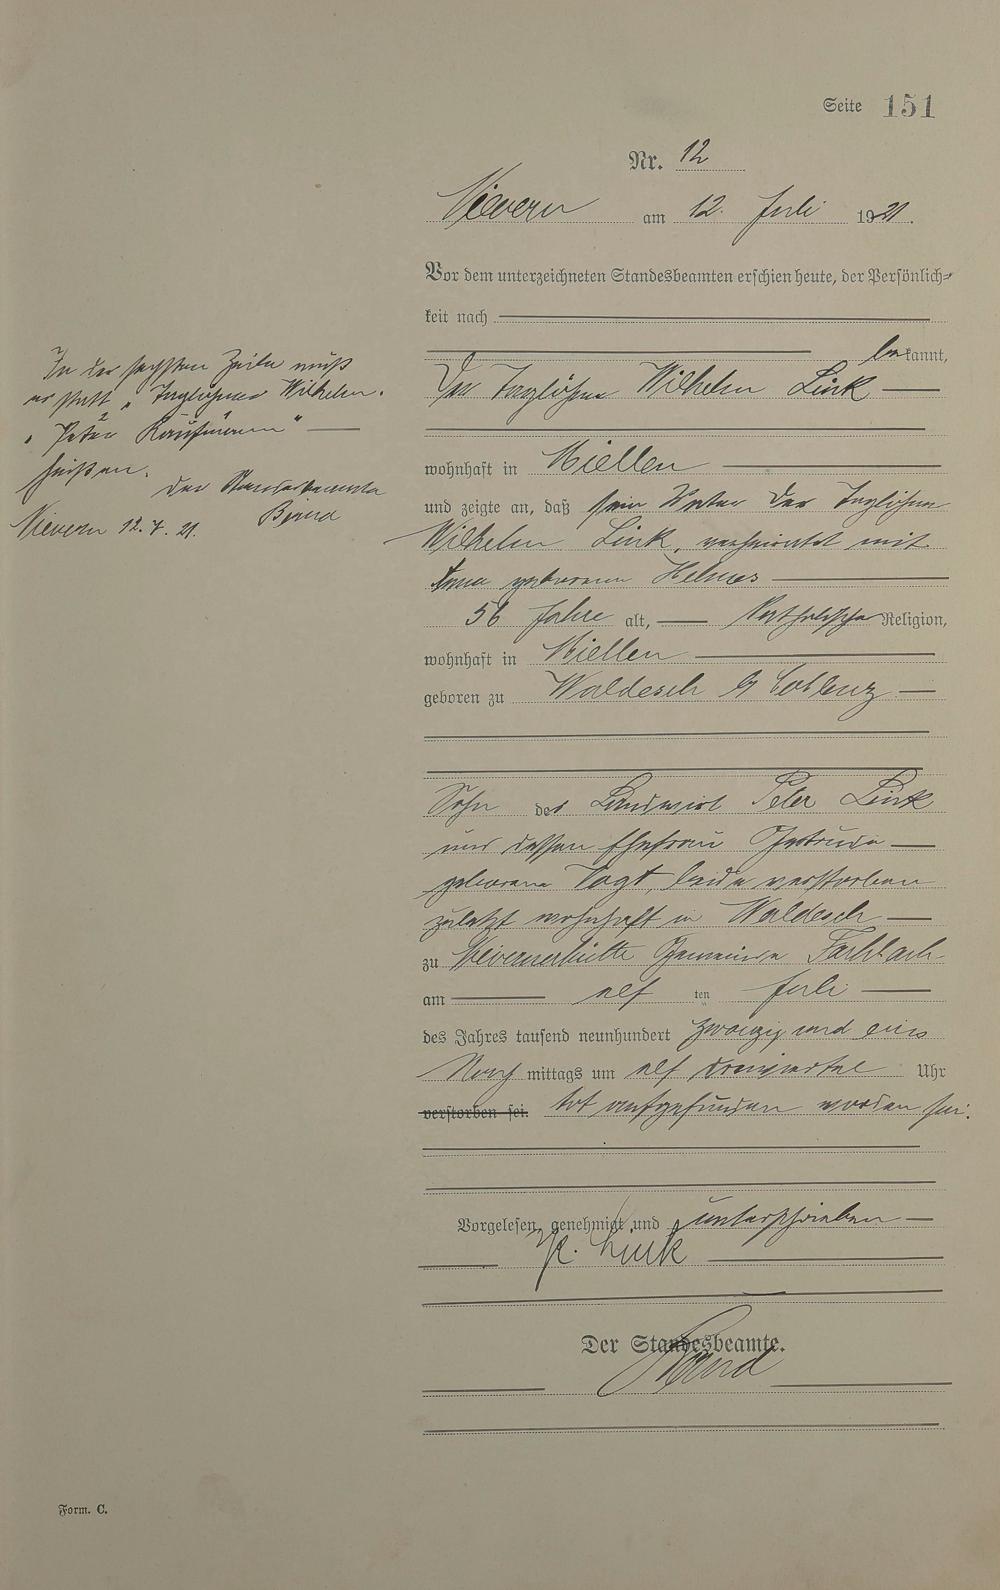 Seite 151
Nr. 12
Nievern am 12. Juli 1921.
Vor dem unterzeichneten Standesbeamten erschien heute, der Persönlich-
keit nach
bekannt,
Der Taglöhner Wilhelm Link
wohnhaft in Miellen
und zeigte an, daß sein Vater Der Taglöhner
Wilhelm Link, verheiratet mit
Anna geborenen
56 Jahre alt, Katholischer Religion,
wohnhaft in Miellen
geboren zu Waldesch Coblenz
Sohn des Landwirt Peter Link
und dessen Ehefrau
geborene Vogt, beide verstorben
zuletzt wohnhaft in Waldesch
zu Nievernerhütte Gemeinde Fachbach
am elf ten Juli
des Jahres tausend neunhundert zwanzig und eins
Nach mittags um elf dreiviertel Uhr
verstorben sei. tot aufgefunden worden sei.
Vorgelesen, genehmigt und unterschrieben
W. Link
Der Standesbeamte.
In der sechsten Zeile muß
es statt „Taglöhner Wilhelm"
„Peter Kaufmann"
heißen.
Der Standesbeamte
Nievern 12. 7. 21.
Form. C.